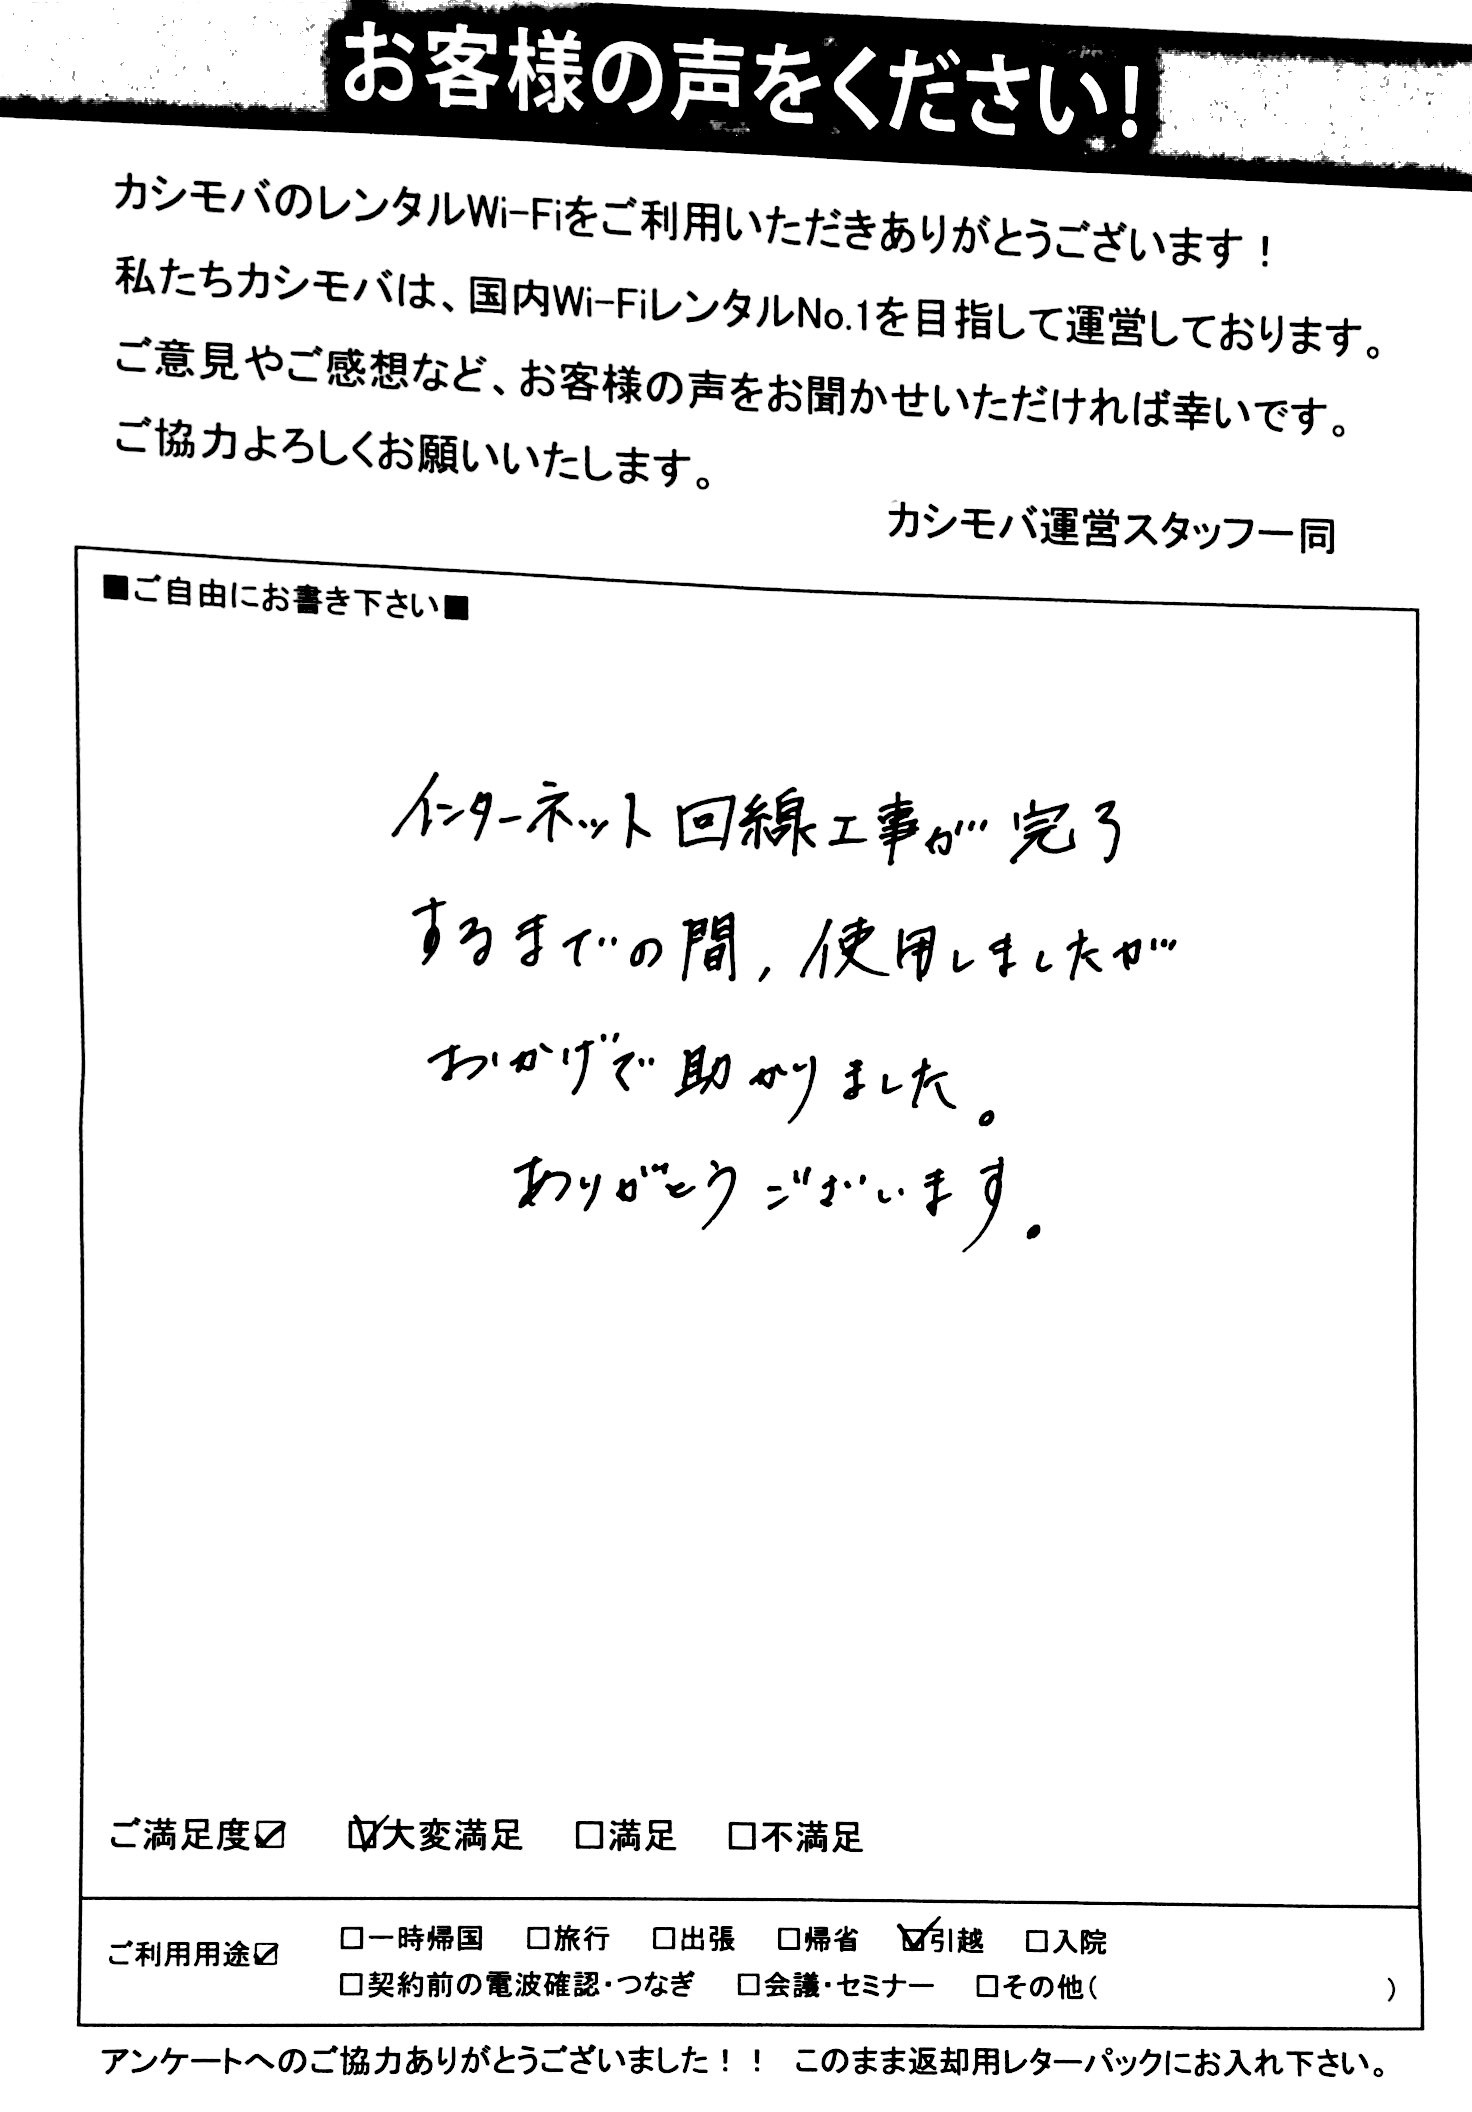 お客様の声をください!
カシモバのレンタルWi-Fiをご利用いただきありがとうございます！
私たちカシモバは、国内Wi-FiレンタルNo.1を目指して運営しております。
ご意見やご感想など、お客様の声をお聞かせいただければ幸いです。
ご協力よろしくお願いいたします。
カシモバ運営スタッフ一同
■ご自由にお書き下さい■
インターネット回線工事が完了
するまでの間,使用しましたが
おかげで助かりました。
ありがとうございます.
ご満足度☑ ☑大変満足 □満足 □不満足
ご利用用途☑ □一時帰国 □旅行 □出張 □帰省 ☑引越 □入院
□契約前の電波確認・つなぎ □会議・セミナー □その他( )
アンケートへのご協力ありがとうございました！！ このまま返却用レターパックにお入れ下さい。